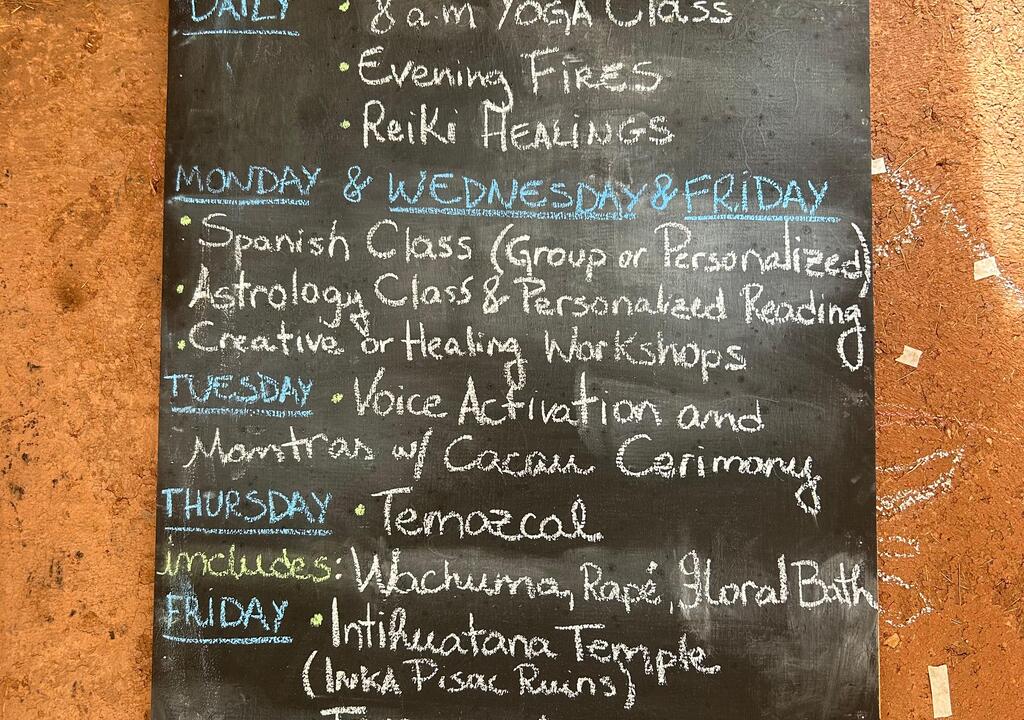 DAILY • 8 a.m YOGA Class
• Evening FIRES
• Reiki HEALINGS
MONDAY & WEDNESDAY & FRIDAY
• Spanish Class (Group or Personalized)
• Astrology Class & Personalized Reading
• Creative or Healing Workshops
TUESDAY • Voice Activation and
Mantras w/ Cacau Cerimony
THURSDAY • Temozcal
includes: Wachuma, Rapé, floral Bath
FRIDAY • Intihuatana Temple
(INKA Pisac Ruins)